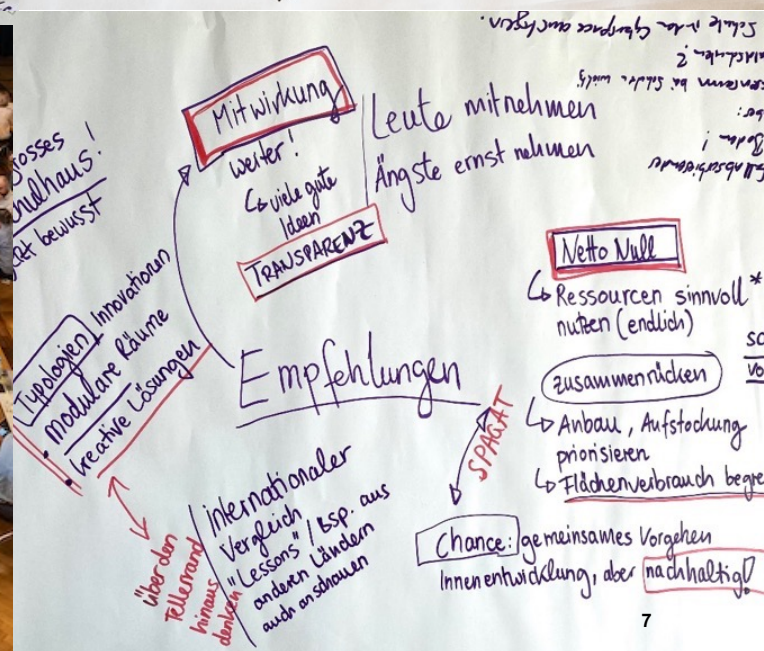 Mitwirkung
weiter!
↳ viele gute
Ideen
TRANSPARENZ
Leute mitnehmen
Ängste ernst nehmen
bewusst
Typologien Innovationen
• modulare Räume
• kreative Lösungen
"über den
Tellerrand
hinaus
denken"
internationaler
Vergleich
"Lessons" / Bsp. aus
anderen Ländern
auch anschauen
Empfehlungen
SPAGAT
Netto Null
↳ Ressourcen sinnvoll *
nutzen (endlich)
zusammenrücken
↳ Anbau, Aufstockung
priorisieren
↳ Flächenverbrauch begre
Chance: gemeinsames Vorgehen
Innenentwicklung, aber nachhaltig!
7